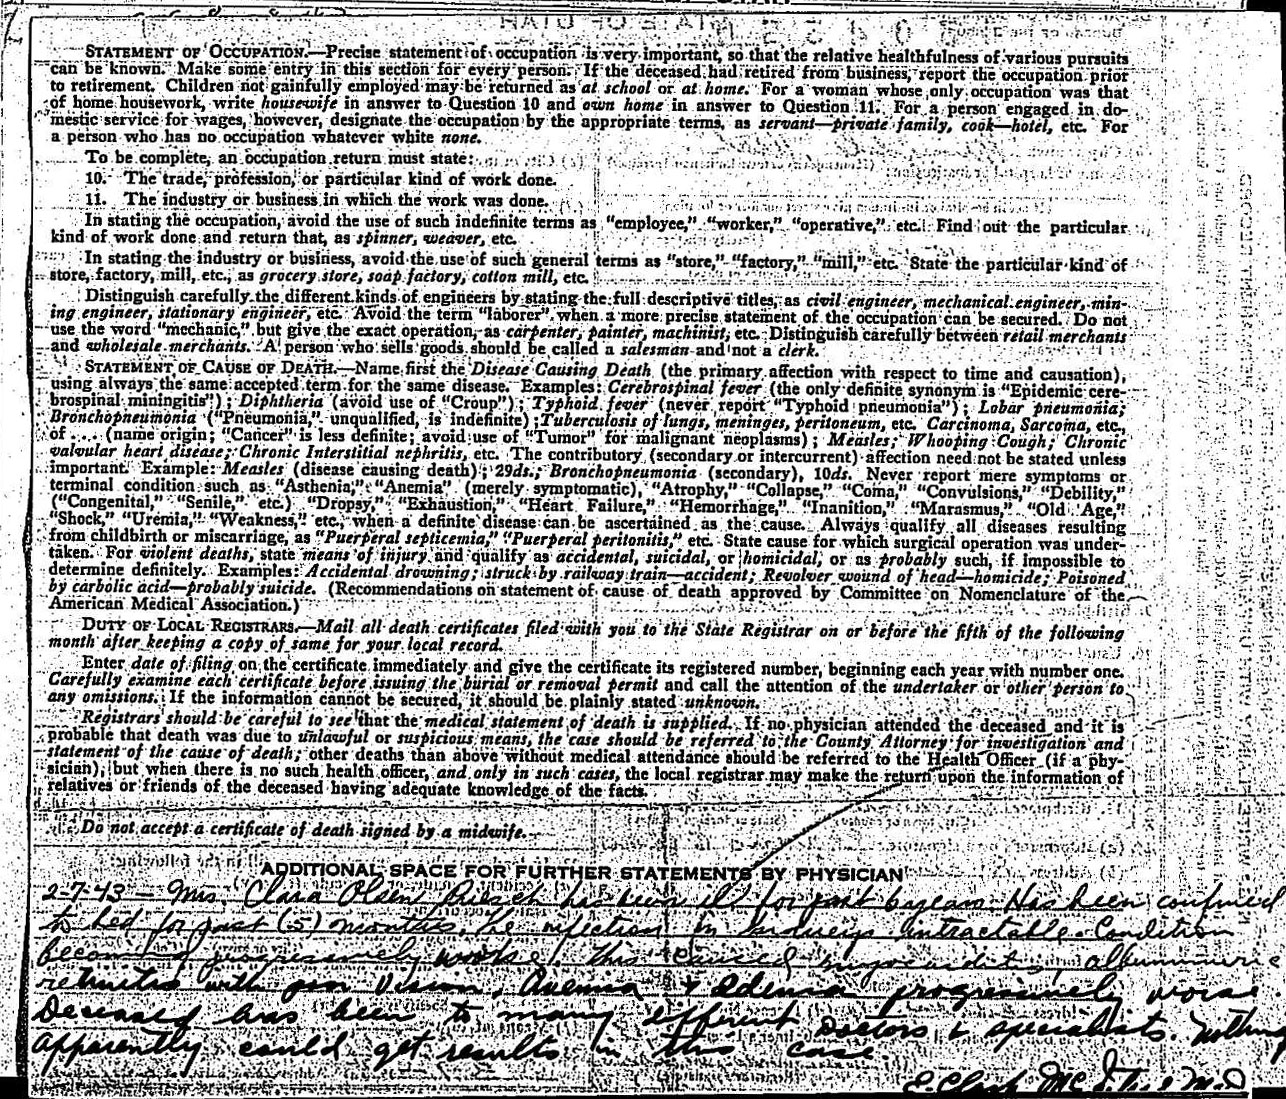 STATEMENT OF OCCUPATION.—Precise statement of occupation is very important, so that the relative healthfulness of various pursuits
can be known. Make some entry in this section for every person. If the deceased had retired from business, report the occupation prior
to retirement. Children not gainfully employed may be returned as at school or at home. For a woman whose only occupation was that
of home housework, write housewife in answer to Question 10 and own home in answer to Question 11. For a person engaged in do-
mestic service for wages, however, designate the occupation by the appropriate terms, as servant—private family, cook—hotel, etc. For
a person who has no occupation whatever white none.
To be complete, an occupation return must state:
10. The trade, profession, or particular kind of work done.
11. The industry or business in which the work was done.
In stating the occupation, avoid the use of such indefinite terms as "employee," "worker," "operative," etc. Find out the particular
kind of work done and return that, as spinner, weaver, etc.
In stating the industry or business, avoid the use of such general terms as "store," "factory," "mill," etc. State the particular kind of
store, factory, mill, etc., as grocery store, soap factory, cotton mill, etc.
Distinguish carefully the different kinds of engineers by stating the full descriptive titles, as civil engineer, mechanical engineer, min-
ing engineer, stationary engineer, etc. Avoid the term "laborer" when a more precise statement of the occupation can be secured. Do not
use the word "mechanic," but give the exact operation, as carpenter, painter, machinist, etc. Distinguish carefully between retail merchants
and wholesale merchants. A person who sells goods should be called a salesman and not a clerk.
STATEMENT OF CAUSE OF DEATH.—Name first the Disease Causing Death (the primary affection with respect to time and causation),
using always the same accepted term for the same disease. Examples: Cerebrospinal fever (the only definite synonym is "Epidemic cere-
brospinal miningitis"); Diphtheria (avoid use of "Croup"); Typhoid fever (never report "Typhoid pneumonia"); Lobar pneumonia;
Bronchopneumonia ("Pneumonia," unqualified, is indefinite); Tuberculosis of lungs, meninges, peritoneum, etc. Carcinoma, Sarcoma, etc.,
of .... (name origin; "Cancer" is less definite; avoid use of "Tumor" for malignant neoplasms); Measles; Whooping Cough; Chronic
valvular heart disease; Chronic Interstitial nephritis, etc. The contributory (secondary or intercurrent) affection need not be stated unless
important. Example: Measles (disease causing death); 29ds.; Bronchopneumonia (secondary), 10ds. Never report mere symptoms or
terminal condition such as "Asthenia," "Anemia" (merely symptomatic), "Atrophy," "Collapse," "Coma," "Convulsions," "Debility,"
("Congenital," "Senile," etc.) "Dropsy," "Exhaustion," "Heart Failure," "Hemorrhage," "Inanition," "Marasmus," "Old Age,"
"Shock," "Uremia," "Weakness," etc., when a definite disease can be ascertained as the cause. Always qualify all diseases resulting
from childbirth or miscarriage, as "Puerperal septicemia," "Puerperal peritonitis," etc. State cause for which surgical operation was under-
taken. For violent deaths, state means of injury and qualify as accidental, suicidal, or homicidal, or as probably such, if impossible to
determine definitely. Examples: Accidental drowning; struck by railway train—accident; Revolver wound of head—homicide; Poisoned
by carbolic acid—probably suicide. (Recommendations on statement of cause of death approved by Committee on Nomenclature of the
American Medical Association.)
DUTY OF LOCAL REGISTRARS.—Mail all death certificates filed with you to the State Registrar on or before the fifth of the following
month after keeping a copy of same for your local record.
Enter date of filing on the certificate immediately and give the certificate its registered number, beginning each year with number one.
Carefully examine each certificate before issuing the burial or removal permit and call the attention of the undertaker or other person to
any omissions. If the information cannot be secured, it should be plainly stated unknown.
Registrars should be careful to see that the medical statement of death is supplied. If no physician attended the deceased and it is
probable that death was due to unlawful or suspicious means, the case should be referred to the County Attorney for investigation and
statement of the cause of death; other deaths than above without medical attendance should be referred to the Health Officer (if a phy-
sician); but when there is no such health officer, and only in such cases, the local registrar may make the return upon the information of
relatives or friends of the deceased having adequate knowledge of the facts.
Do not accept a certificate of death signed by a midwife.
ADDITIONAL SPACE FOR FURTHER STATEMENTS BY PHYSICIAN
2-7-43 — Mrs. Clara Olsen has been ill for past 6 years. Has been confined
to bed for past (5) months, the infection in kidneys intractable. Condition
becoming progressively worse. This caused myocarditis, albuminuric
retinitis with poor vision, Anemia & edema progressively worse
Deceased has been to many different Doctors & specialists. Nothing
apparently could get results in this case.
E. Clark M.D.